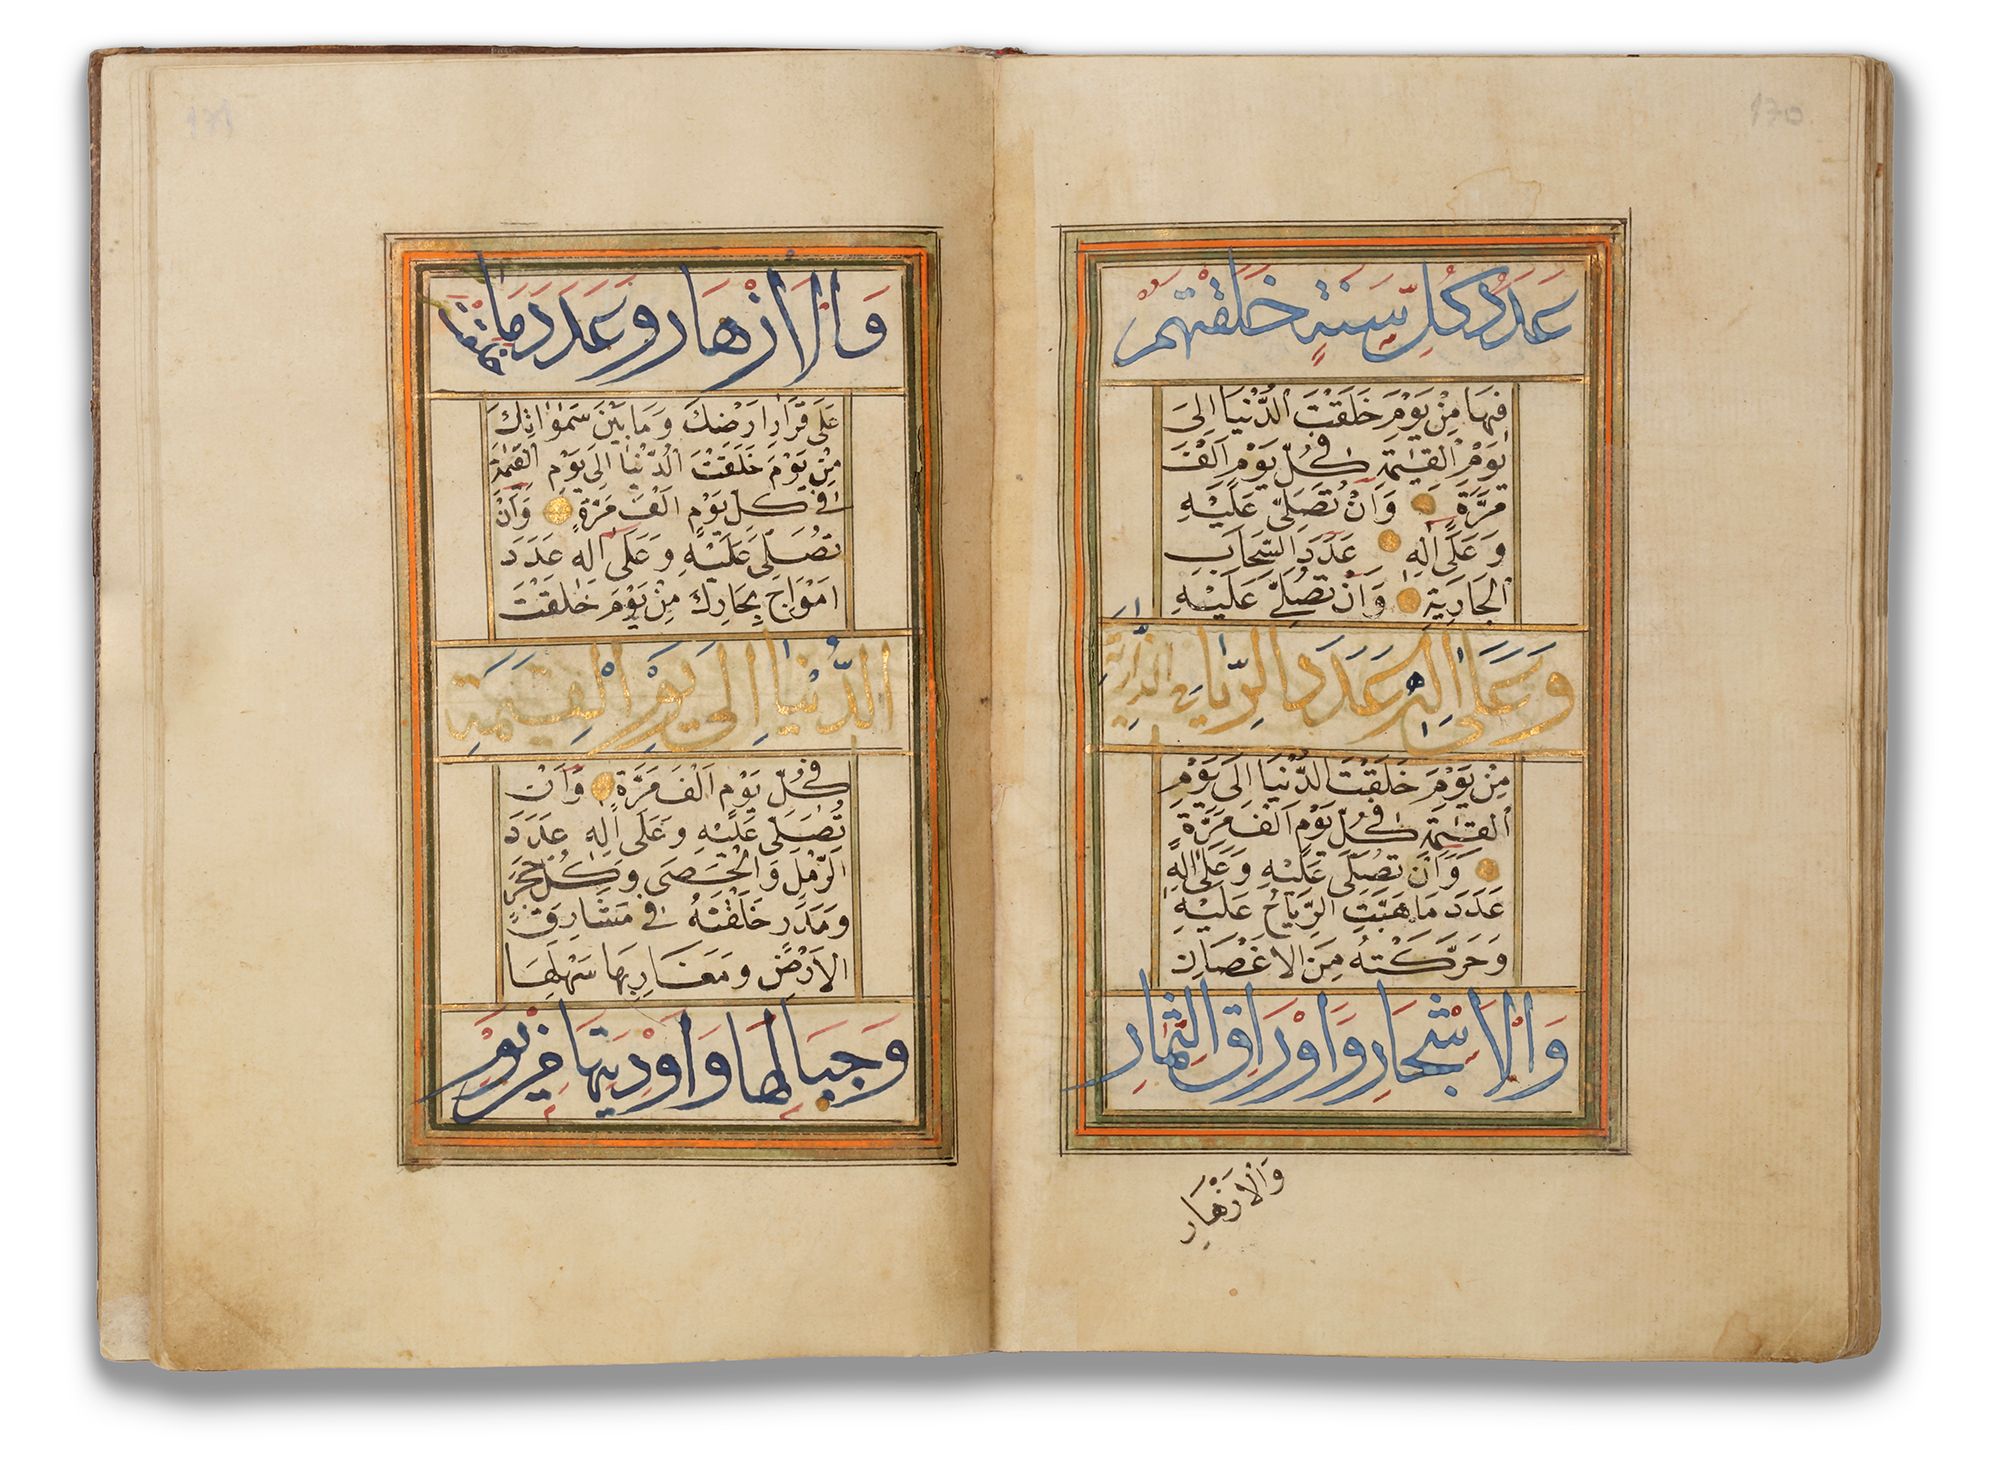 170
عَدَدَ كُلِّ سَنَةٍ خَلَقْتَهُمْ
فِيهَا مِنْ يَوْمَ خَلَقْتَ الدُّنْيَا اِلَى
يَوْمِ الْقِيٰمَةِ فِى كُلِّ يَوْمٍ اَلْفَ
مَرَّةٍ وَاَنْ تُصَلِّىَ عَلَيْهِ
وَعَلٰى اٰلِهِ عَدَدَ السَّحَابِ
الْجَارِيَةِ وَاَنْ تُصَلِّىَ عَلَيْهِ
وَعَلٰى اٰلِهِ عَدَدَ الرِّيَاحِ الذَّارِيَةِ
مِنْ يَوْمَ خَلَقْتَ الدُّنْيَا اِلَى يَوْمِ
الْقِيٰمَةِ فِى كُلِّ يَوْمٍ اَلْفَ مَرَّةٍ
وَاَنْ تُصَلِّىَ عَلَيْهِ وَعَلٰى اٰلِهِ
عَدَدَ مَا هَبَّتِ الرِّيَاحُ عَلَيْهِ
وَحَرَّكَتْهُ مِنَ الْاَغْصَانِ
وَالْاَشْجَارِ وَاَوْرَاقِ الثِّمَارِ
وَالْاَزْهَارِ
171
وَالْاَزْهَارِ وَعَدَدَ مَا
عَلٰى قَرَارِ اَرْضِكَ وَمَا بَيْنَ سَمٰوَاتِكَ
مِنْ يَوْمَ خَلَقْتَ الدُّنْيَا اِلَى يَوْمِ الْقِيٰمَةِ
فِى كُلِّ يَوْمٍ اَلْفَ مَرَّةٍ وَاَنْ
تُصَلِّىَ عَلَيْهِ وَعَلٰى اٰلِهِ عَدَدَ
اَمْوَاجِ بِحَارِكَ مِنْ يَوْمَ خَلَقْتَ
الدُّنْيَا اِلَى يَوْمِ الْقِيٰمَةِ
فِى كُلِّ يَوْمٍ اَلْفَ مَرَّةٍ وَاَنْ
تُصَلِّىَ عَلَيْهِ وَعَلٰى اٰلِهِ عَدَدَ
الرَّمْلِ وَالْحَصٰى وَكُلِّ حَجَرٍ
وَمَدَرٍ خَلَقْتَهُ فِى مَشَارِقِ
الْاَرْضِ وَمَغَارِبِهَا سَهْلِهَا
وَجِبَالِهَا وَاَوْدِيَتِهَا مِنْ يَوْمِ